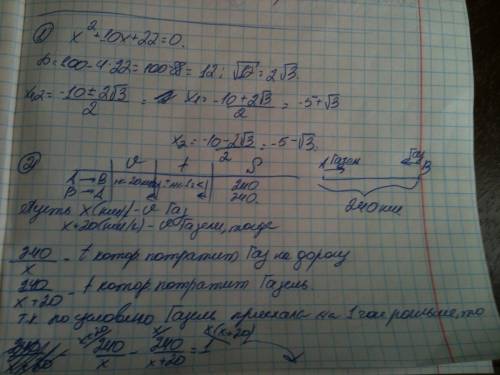 ① x²+10x+22=0.
D=100-4·22=100-88=12; √12=2√3
x₁,₂=(-10±2√3)/2= x₁=(-10+2√3)/2=-5+√3
x₂=(-10-2√3)/2=-5-√3.
② v t S
A Газель Газ B
A→B 240
B→A 240
240 км
Пусть x(км/ч)-v Газ
x+20(км/ч)-v Газели, тогда
240/x - t котор потратит Газ на дорогу
240/(x+20) - t котор потратит Газель.
т.к по условию Газель приехала на 1 час раньше, то
240/x - 240/(x+20) = 1 x(x+20)